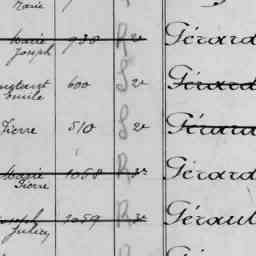 Marie
Marie Joseph 938 R 2e Gérard
Constant Emile 600 S 2e Gérard
Pierre 510 S 2e Gérard
Marie Pierre 1058 R 3e Gérard
Joseph Julien 1059 R 3e Géraul